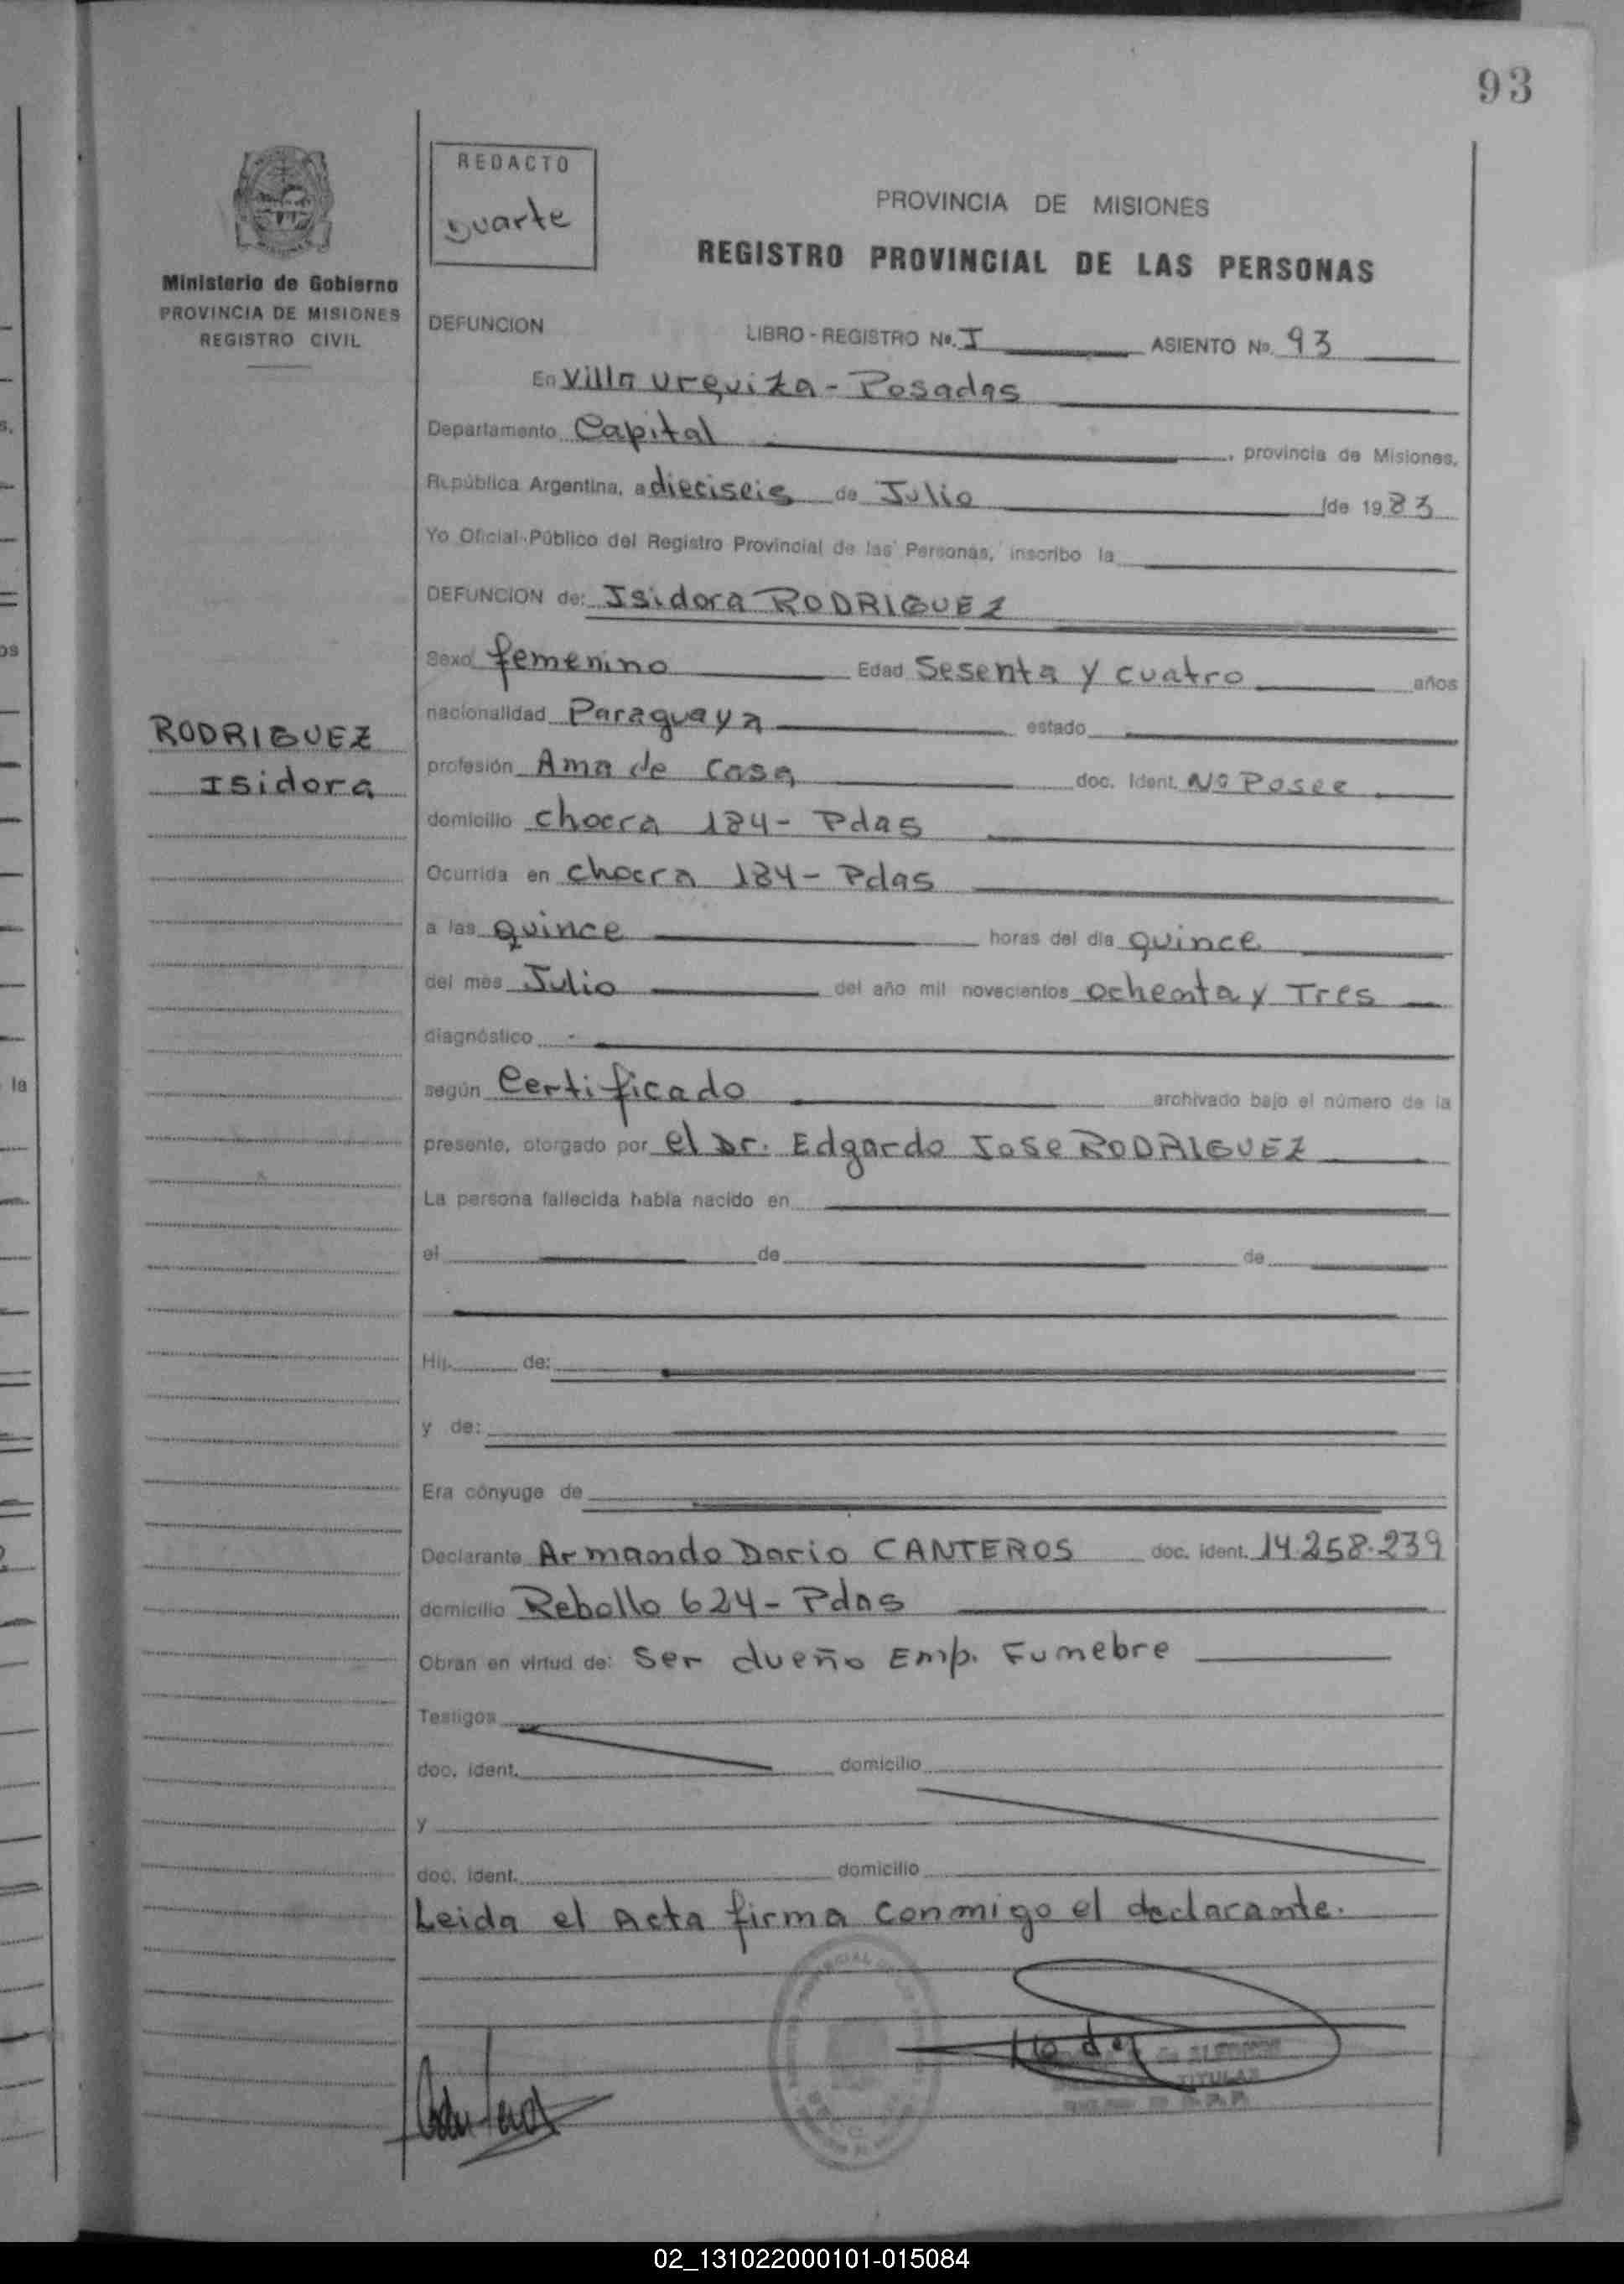 93
REDACTO
Duarte
Ministerio de Gobierno
PROVINCIA DE MISIONES
REGISTRO CIVIL
PROVINCIA DE MISIONES
REGISTRO PROVINCIAL DE LAS PERSONAS
DEFUNCION LIBRO - REGISTRO No. I ASIENTO No. 93
En Villa Urquiza - Posadas
Departamento Capital, provincia de Misiones,
República Argentina, a dieciseis de Julio de 1983
Yo Oficial Público del Registro Provincial de las Personas, inscribo la
DEFUNCION de: Isidora RODRIGUEZ
Sexo femenino Edad Sesenta y cuatro años
RODRIGUEZ
Isidora
nacionalidad Paraguaya estado
profesión Ama de Casa doc. Ident. No Posee
domicilio chacra 184 - Pdas
Ocurrida en chacra 184 - Pdas
a las quince horas del día quince
del mes Julio del año mil novecientos ochenta y Tres
diagnóstico -
según Certificado archivado bajo el número de la
presente, otorgado por el Dr. Edgardo Jose RODRIGUEZ
La persona fallecida había nacido en
el de de
Hij de:
y de:
Era cónyuge de
Declarante Armando Dario CANTEROS doc. ident. 14.258.239
domicilio Rebollo 624 - Pdas
Obran en virtud de: Ser dueño Emp. Funebre
Testigos
doc. ident. domicilio
y
doc. ident. domicilio
Leida el Acta firma conmigo el declarante.
TITULAR
02_131022000101-015084